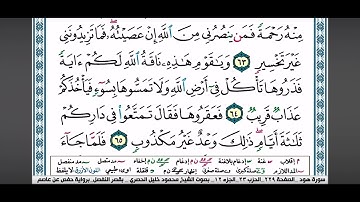 مِنْهُ رَحْمَةً فَمَن يَنصُرُنِي مِنَ ٱللَّهِ إِنْ عَصَيْتُهُۥ فَمَا تَزِيدُونَنِي
غَيْرَ تَخْسِيرٍ ٦٣ وَيَٰقَوْمِ هَٰذِهِۦ نَاقَةُ ٱللَّهِ لَكُمْ ءَايَةً
فَذَرُوهَا تَأْكُلْ فِىٓ أَرْضِ ٱللَّهِ وَلَا تَمَسُّوهَا بِسُوٓءٍ فَيَأْخُذَكُمْ
عَذَابٌ قَرِيبٌ ٦٤ فَعَقَرُوهَا فَقَالَ تَمَتَّعُوا۟ فِى دَارِكُمْ
ثَلَٰثَةَ أَيَّامٍ ذَٰلِكَ وَعْدٌ غَيْرُ مَكْذُوبٍ ٦٥ فَلَمَّا جَآءَ
سورة هود - الصفحة ٢٢٩ - الجزء ٢٣ - الحزب ١٢ - بصوت الشيخ محمود خليل الحصري - بقصر المنفصل - برواية حفص عن عاصم